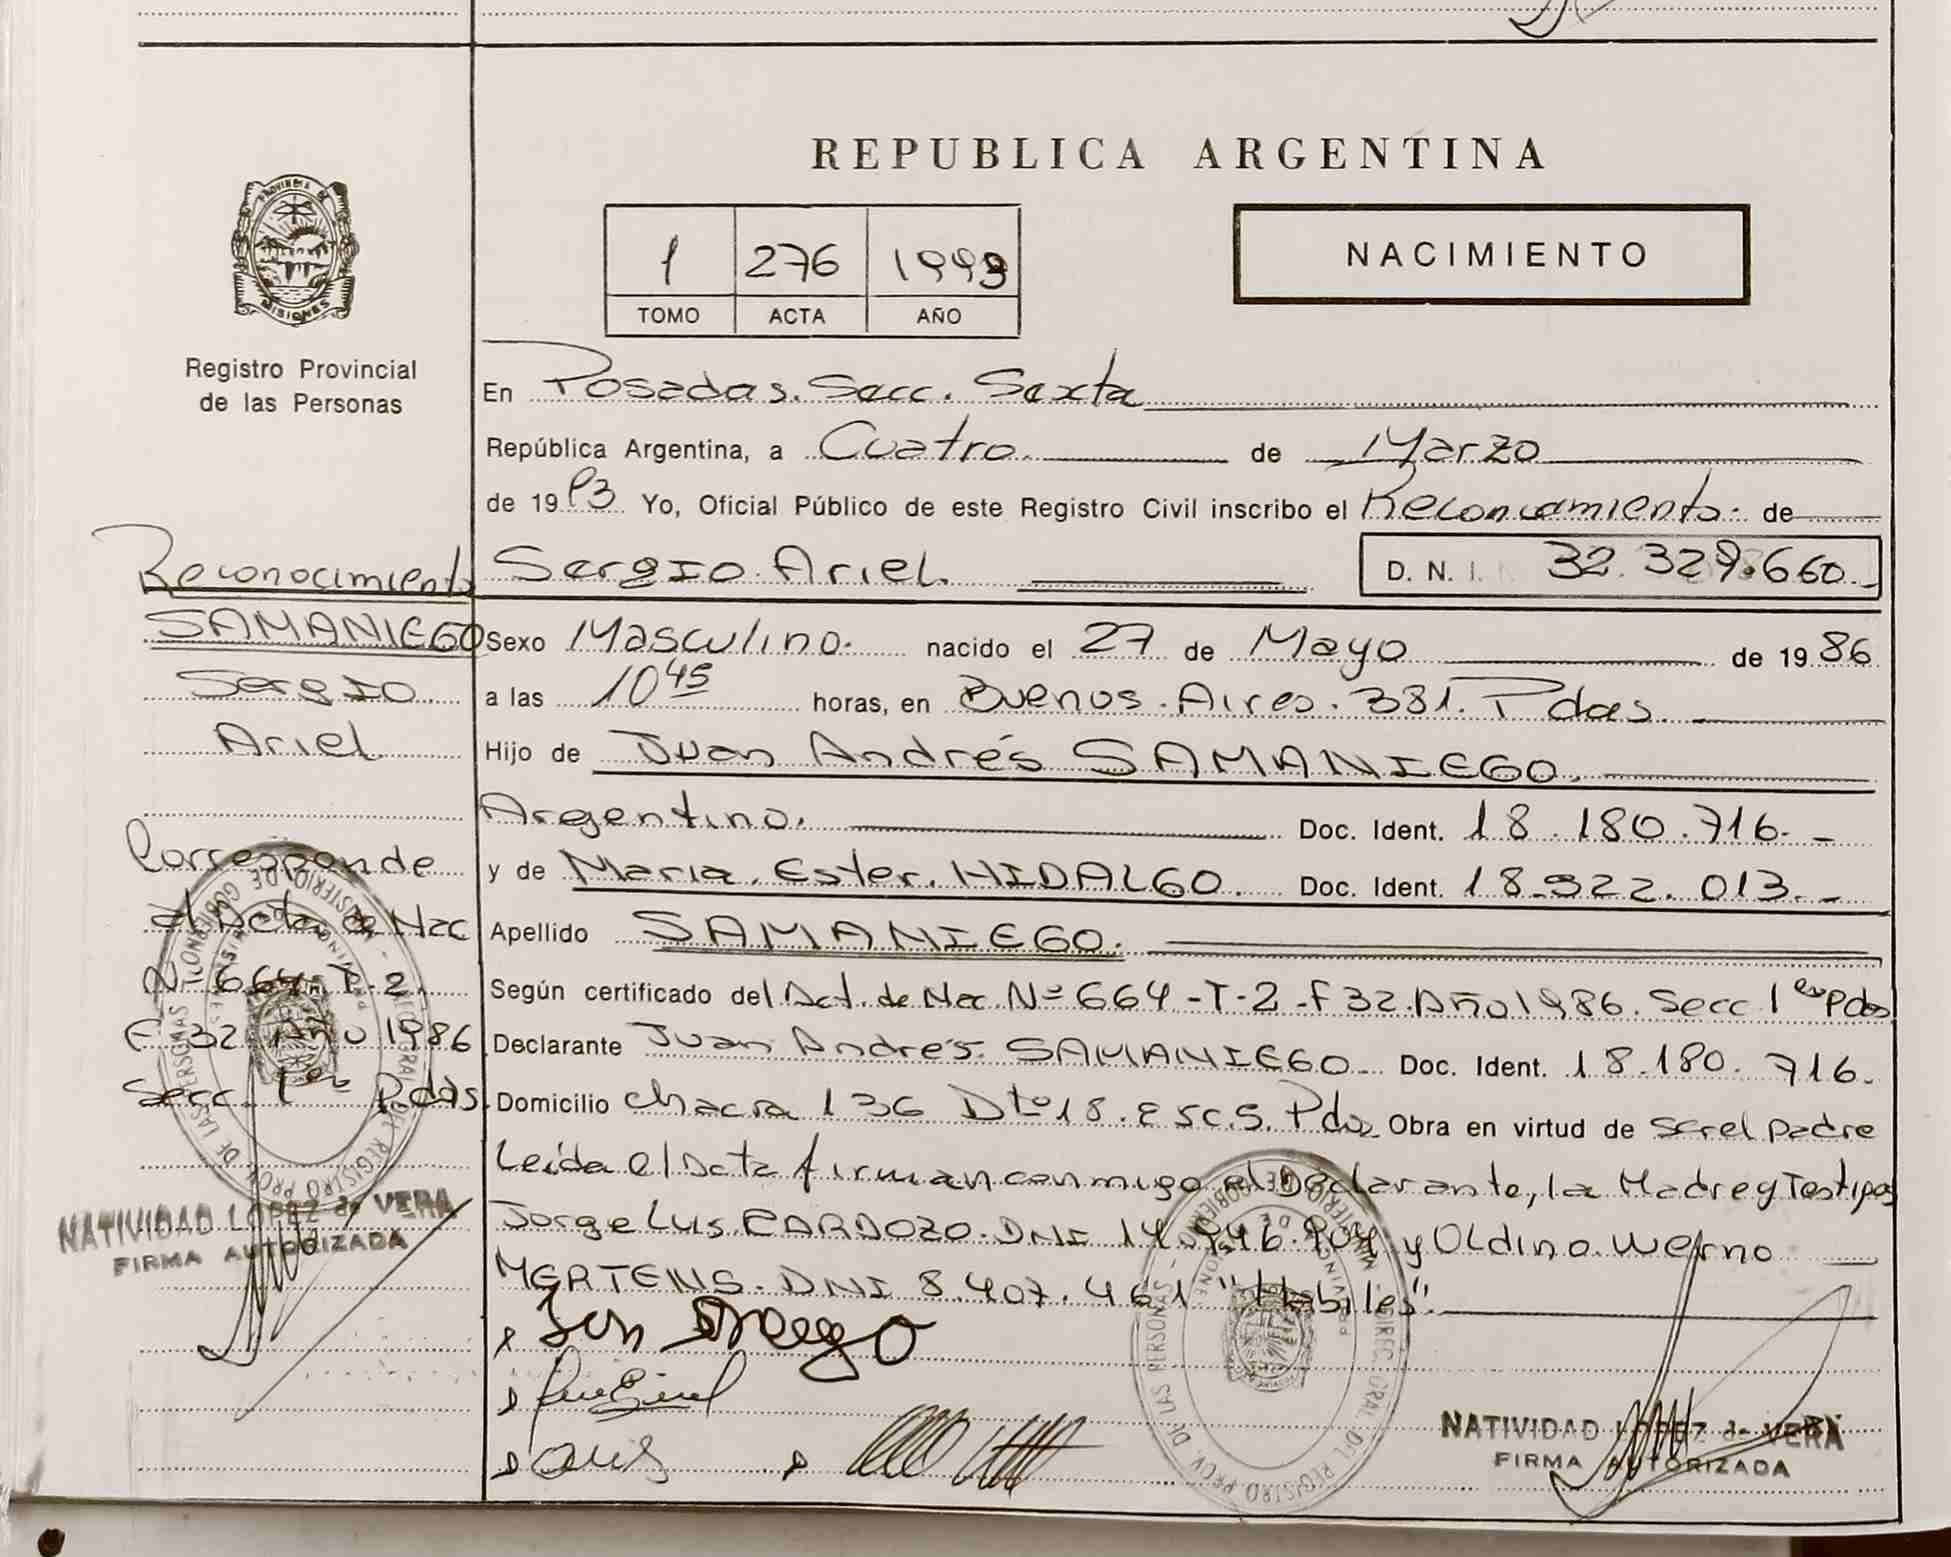 REPUBLICA ARGENTINA
PROVINCIA DE
MISIONES
Registro Provincial
de las Personas
1 276 1993
TOMO ACTA AÑO
NACIMIENTO
En Posadas. Secc. Sexta
República Argentina, a Cuatro. de Marzo
de 1993 Yo, Oficial Público de este Registro Civil inscribo el Reconocimiento. de
Sergio Ariel. D. N. I. 32.329.660.-
Sexo Masculino. nacido el 27 de Mayo de 1986
a las 10 45 horas, en Buenos. Aires. 381. Pdas.
Hijo de Juan Andrés SAMANIEGO.
Argentino. Doc. Ident. 18.180.716.-
y de Maria. Ester. HIDALGO. Doc. Ident. 18.922.013.-
Apellido SAMANIEGO.
Según certificado del Act. de Nac. Nº 664-T-2-F32. Año 1986. Secc 1era Pdas
Declarante Juan Andrés. SAMANIEGO. Doc. Ident. 18.180.716.
Domicilio Chacra 136 Dto 18. Esc.5. Pdas Obra en virtud de ser el padre
Leída el Acta firman conmigo el Declarante, la Madre y Testigos
Jorge Luis. CARDOZO. DNI 14.946.904 y Oldino. Werno
MERTENS. DNI 8.407.461 "Habiles".
Reconocimiento
SAMANIEGO
Sergio
Ariel
Corresponde
al Acta de Nac
Nº 664 T-2
F 32 Año 1986
Secc. 1era Pdas.
NATIVIDAD LOPEZ de VERA
FIRMA AUTORIZADA
NATIVIDAD LOPEZ de VERA
FIRMA AUTORIZADA